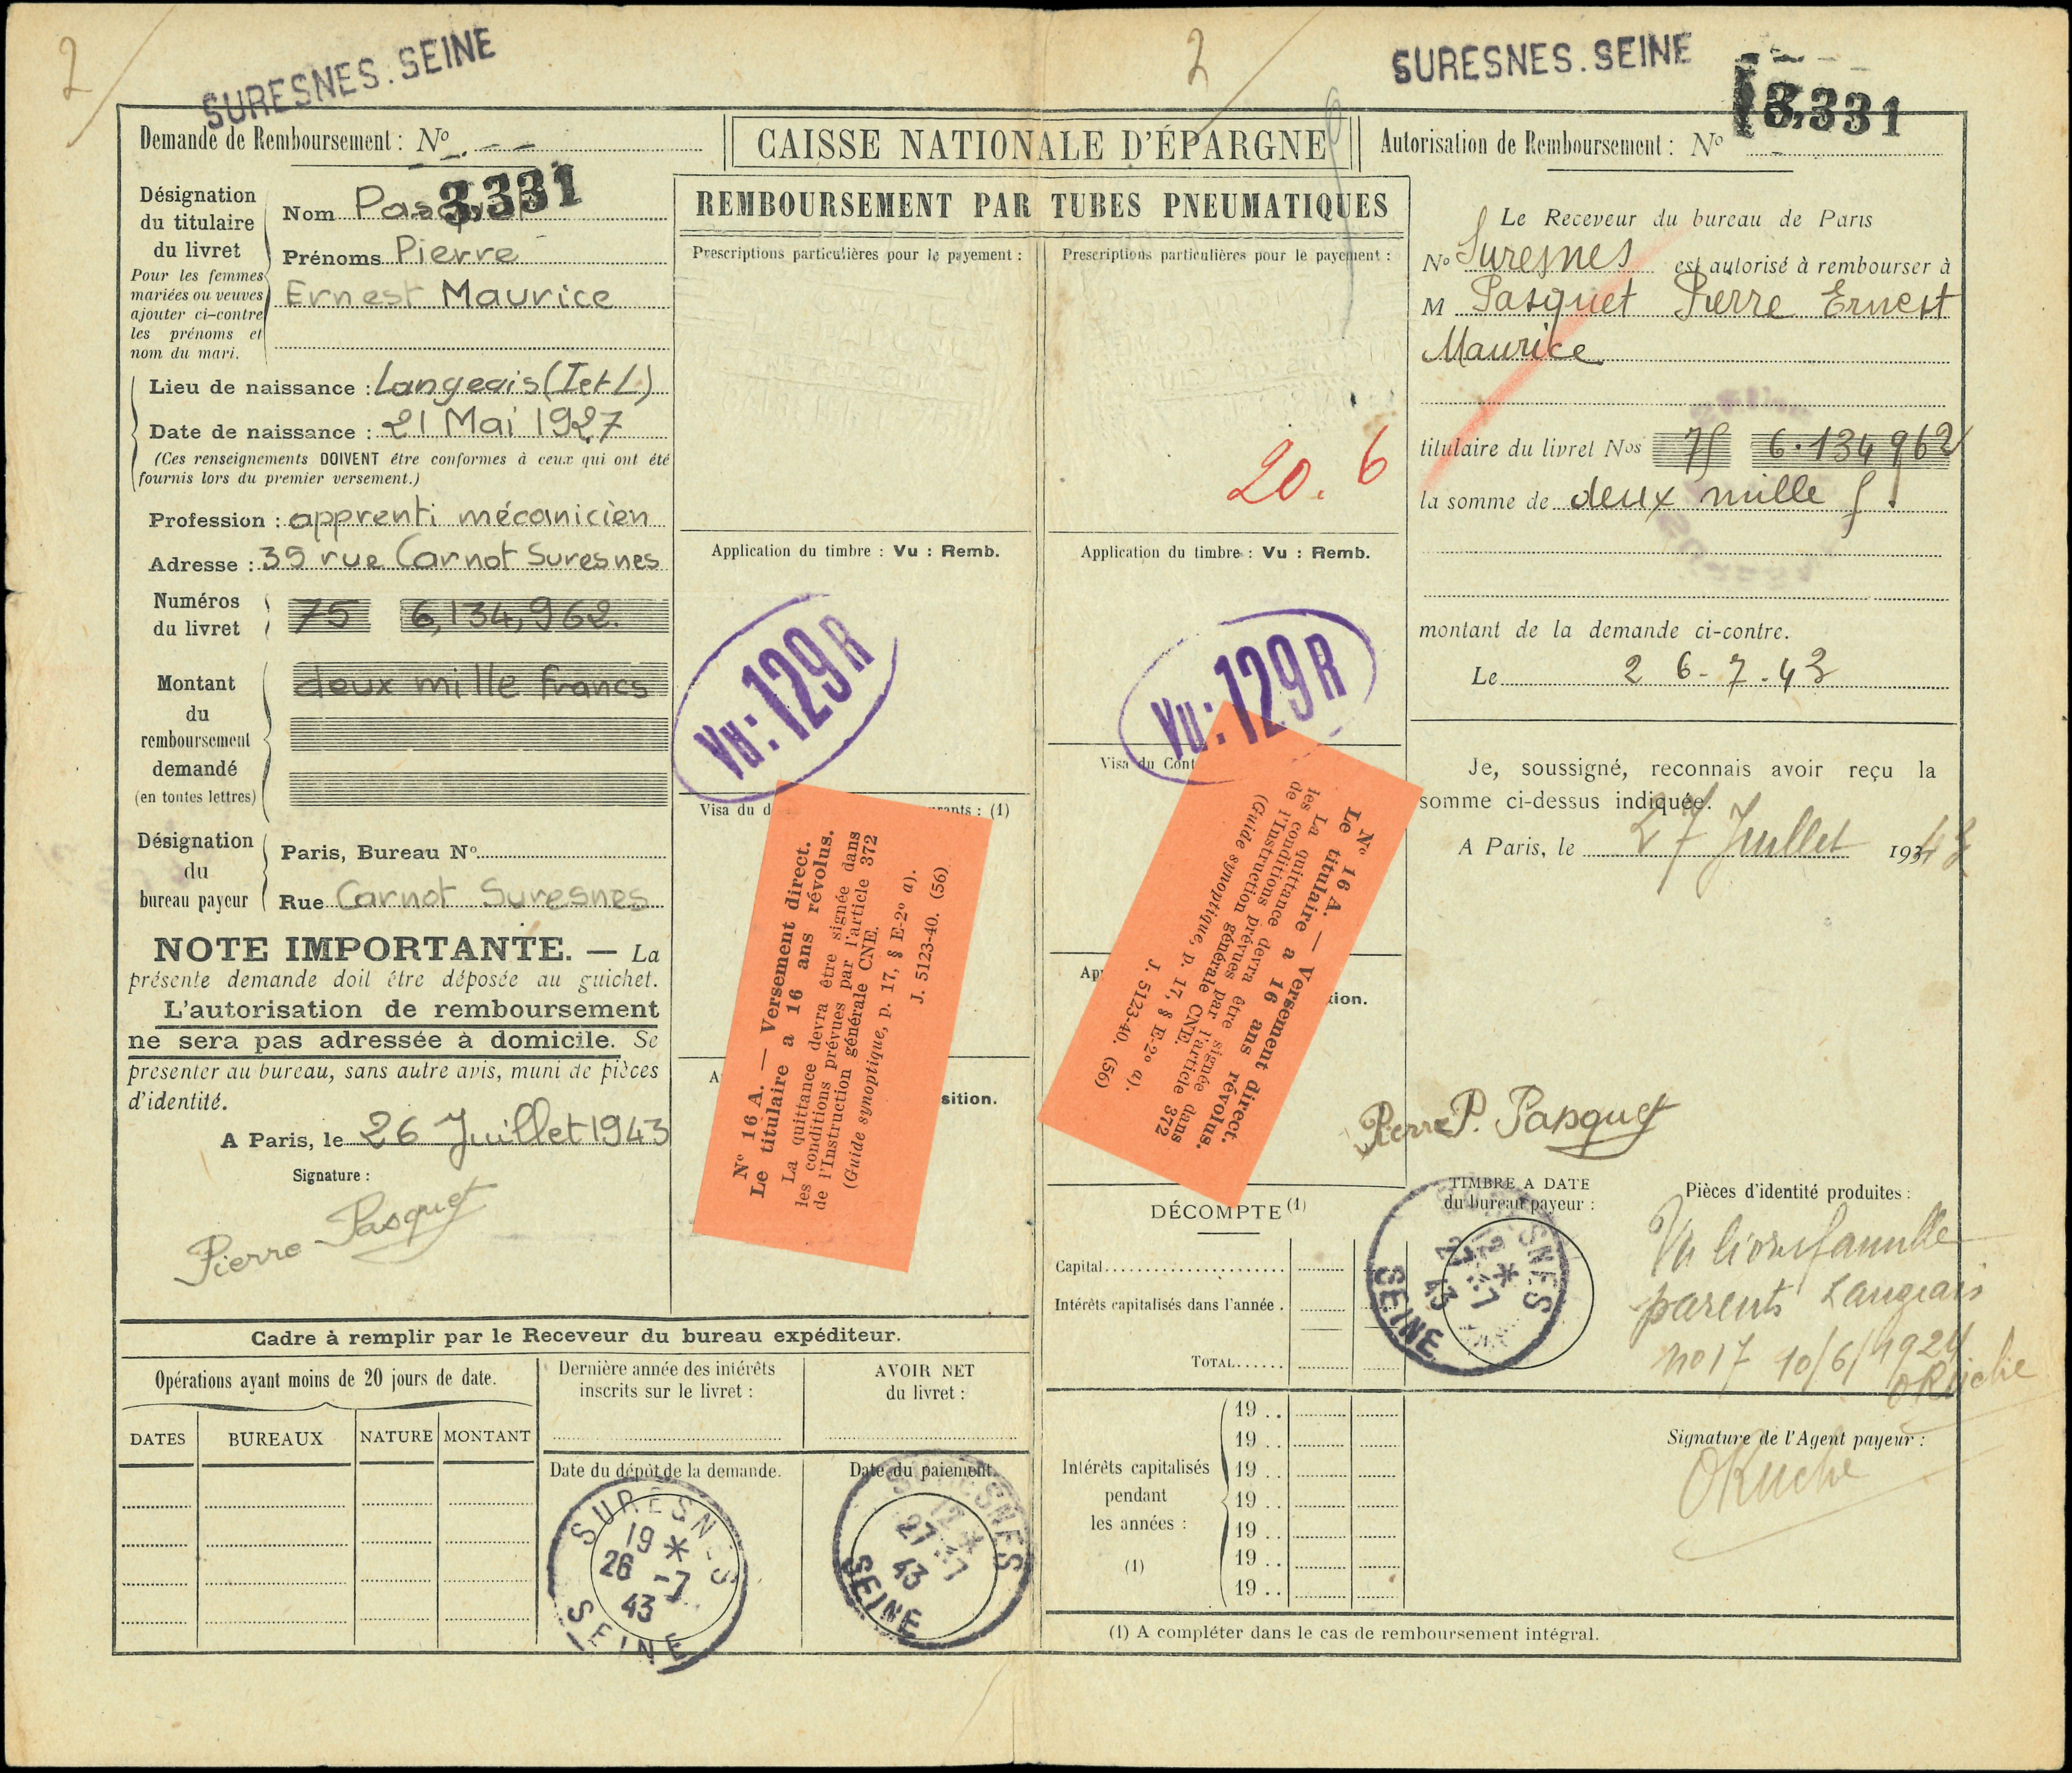 2
SURESNES.SEINE
2
SURESNES.SEINE
Demande de Remboursement : No
3,331
CAISSE NATIONALE D'ÉPARGNE
REMBOURSEMENT PAR TUBES PNEUMATIQUES
Autorisation de Remboursement : No
3,331
Désignation
du titulaire
du livret
Pour les femmes
mariées ou veuves
ajouter ci-contre
les prénoms et
nom du mari.
Nom Pasquet
Prénoms Pierre
Ernest Maurice
Lieu de naissance : Langeais (I et L)
Date de naissance : 21 Mai 1927
(Ces renseignements DOIVENT être conformes à ceux qui ont été
fournis lors du premier versement.)
Profession : apprenti mécanicien
Adresse : 39 rue Carnot Suresnes
Numéros
du livret
75 6,134,962.
Montant
du
remboursement
demandé
(en toutes lettres)
deux mille francs
Désignation
du
bureau payeur
Paris, Bureau No
Rue Carnot Suresnes
NOTE IMPORTANTE. — La
présente demande doit être déposée au guichet.
L'autorisation de remboursement
ne sera pas adressée à domicile. Se
présenter au bureau, sans autre avis, muni de pièces
d'identité.
A Paris, le 26 Juillet 1943
Signature :
Pierre Pasquet
Prescriptions particulières pour le payement :
Application du timbre : Vu : Remb.
Vu : 129 R
Visa du d
urants : (1)
No 16 A. — Versement direct.
Le titulaire a 16 ans révolus.
La quittance devra être signée dans
les conditions prévues par l'article 372
de l'Instruction générale CNE.
(Guide synoptique, p. 17, § E-2o a).
J. 5123-40. (56)
A
sition.
Prescriptions particulières pour le payement :
20.6
Application du timbre : Vu : Remb.
Vu : 129 R
Visa du Cont
No 16 A. — Versement direct.
Le titulaire a 16 ans révolus.
La quittance devra être signée dans
les conditions prévues par l'article 372
de l'Instruction générale CNE.
(Guide synoptique, p. 17, § E-2o a).
J. 5123-40. (56)
Ap
tion.
DÉCOMPTE (1)
Capital
Intérêts capitalisés dans l'année .
TOTAL
Intérêts capitalisés
pendant
les années :
(1)
19 ..
19 ..
19 ..
19 ..
19 ..
19 ..
19 ..
(1) A compléter dans le cas de remboursement intégral.
Le Receveur du bureau de Paris
No Suresnes est autorisé à rembourser à
M Pasquet Pierre Ernest
Maurice
titulaire du livret Nos 75 6.134962
la somme de deux mille f.
montant de la demande ci-contre.
Le 26-7-43
Je, soussigné, reconnais avoir reçu la
somme ci-dessus indiquée.
A Paris, le 27 Juillet 1943
Pierre P. Pasquet
TIMBRE A DATE
du bureau payeur :
SURESNES
12 *
27 -7
43
SEINE
Pièces d'identité produites :
Vu livret famille
parents Langeais
no 17 10/6/1924
OKuche
Signature de l'Agent payeur :
OKuche
Cadre à remplir par le Receveur du bureau expéditeur.
Opérations ayant moins de 20 jours de date.
DATES BUREAUX NATURE MONTANT
Dernière année des intérêts
inscrits sur le livret :
AVOIR NET
du livret :
Date du dépôt de la demande.
SURESNES
19 *
26 -7
43
SEINE
Date du paiement.
SURESNES
12 *
27 -7
43
SEINE